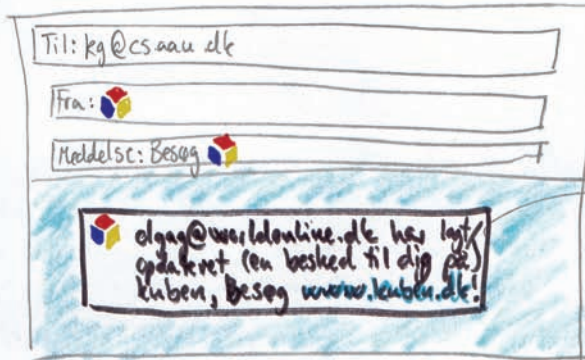 Til: kg@cs.aau.dk
Fra:
Meddelse: Besøg
elgag@worldonline.dk har lagt
opdateret (en besked til dig på)
kuben, Besøg www.kuben.dk!